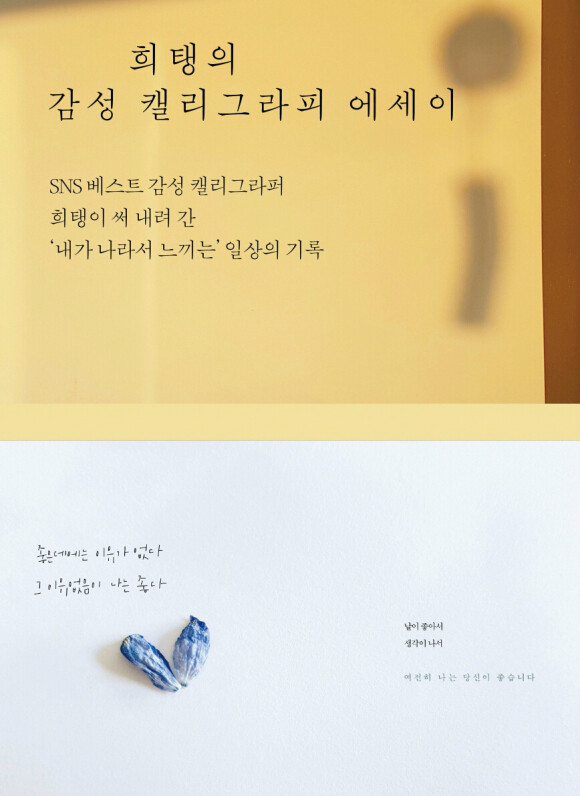 희탱의
감성 캘리그라피 에세이
SNS 베스트 감성 캘리그라퍼
희탱이 써 내려 간
‘내가 나라서 느끼는’ 일상의 기록
좋은데에는 이유가 없다
그 이유없음이 나는 좋다
날이 좋아서
생각이 나서
여전히 나는 당신이 좋습니다